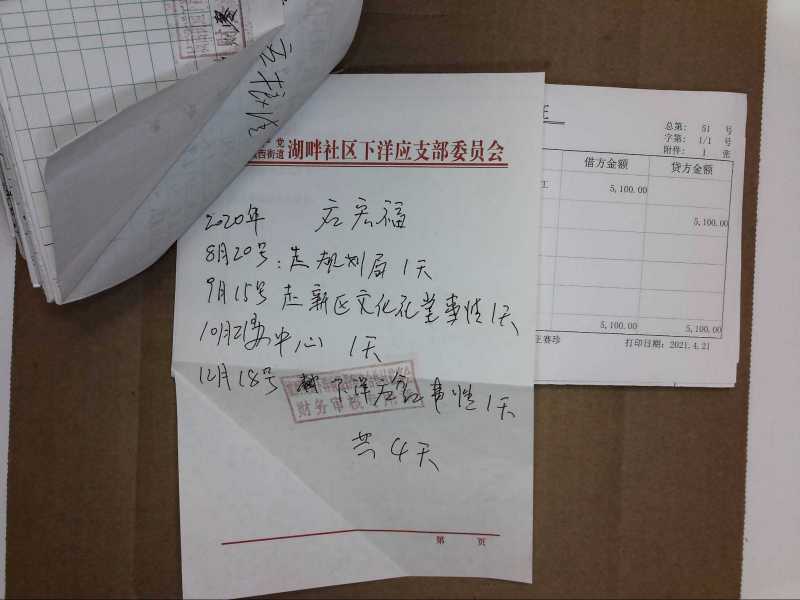 党
西街道 湖畔社区下洋应支部委员会
2020年 应宏福
8月20号：去规划局 1天
9月15号 去新区文化礼堂事情 1天
10月21号 中心 1天
12月18号 下洋应 事情 1天
财务审核
共4天
第 页
总第: 51 号
字第: 1/1 号
附件: 1 张
借方金额 贷方金额
工 5,100.00
5,100.00
5,100.00 5,100.00
王赛珍 打印日期: 2021.4.21